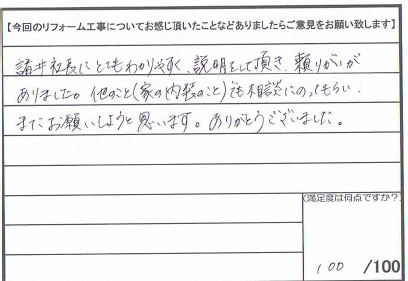 【今回のリフォーム工事についてお感じ頂いたことなどありましたらご意見をお願い致します】
諸井社長にとてもわかりやすく、説明をして頂き、頼りがいが
ありました。他のこと(家の内装のこと)でも相談にのってもらい、
またお願いしようと思います。ありがとうございました。
(満足度は何点ですか？)
100 /100